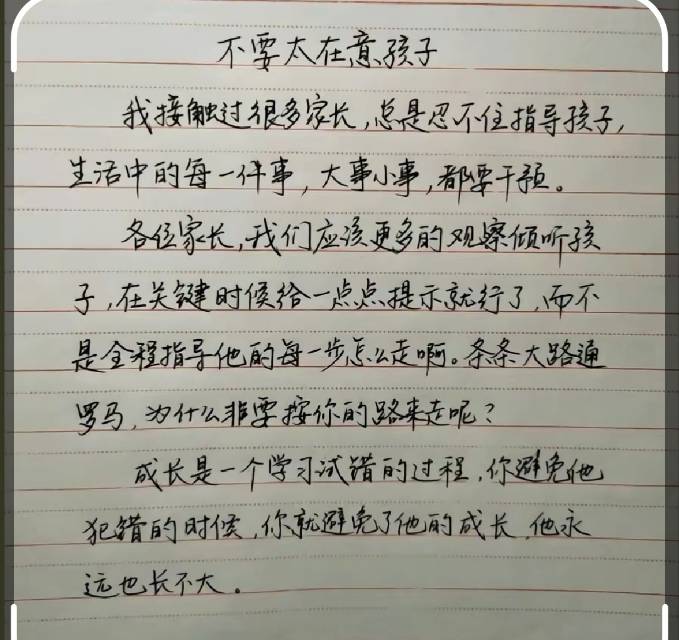 不要太在意孩子
我接触过很多家长,总是忍不住指导孩子,
生活中的每一件事,大事小事,都要干预。
各位家长,我们应该更多的观察倾听孩
子,在关键时候给一点点提示就行了,而不
是全程指导他的每一步怎么走啊。条条大路通
罗马,为什么非要按你的路来走呢?
成长是一个学习试错的过程,你避免他
犯错的时候,你就避免了他的成长,他永
远也长不大。